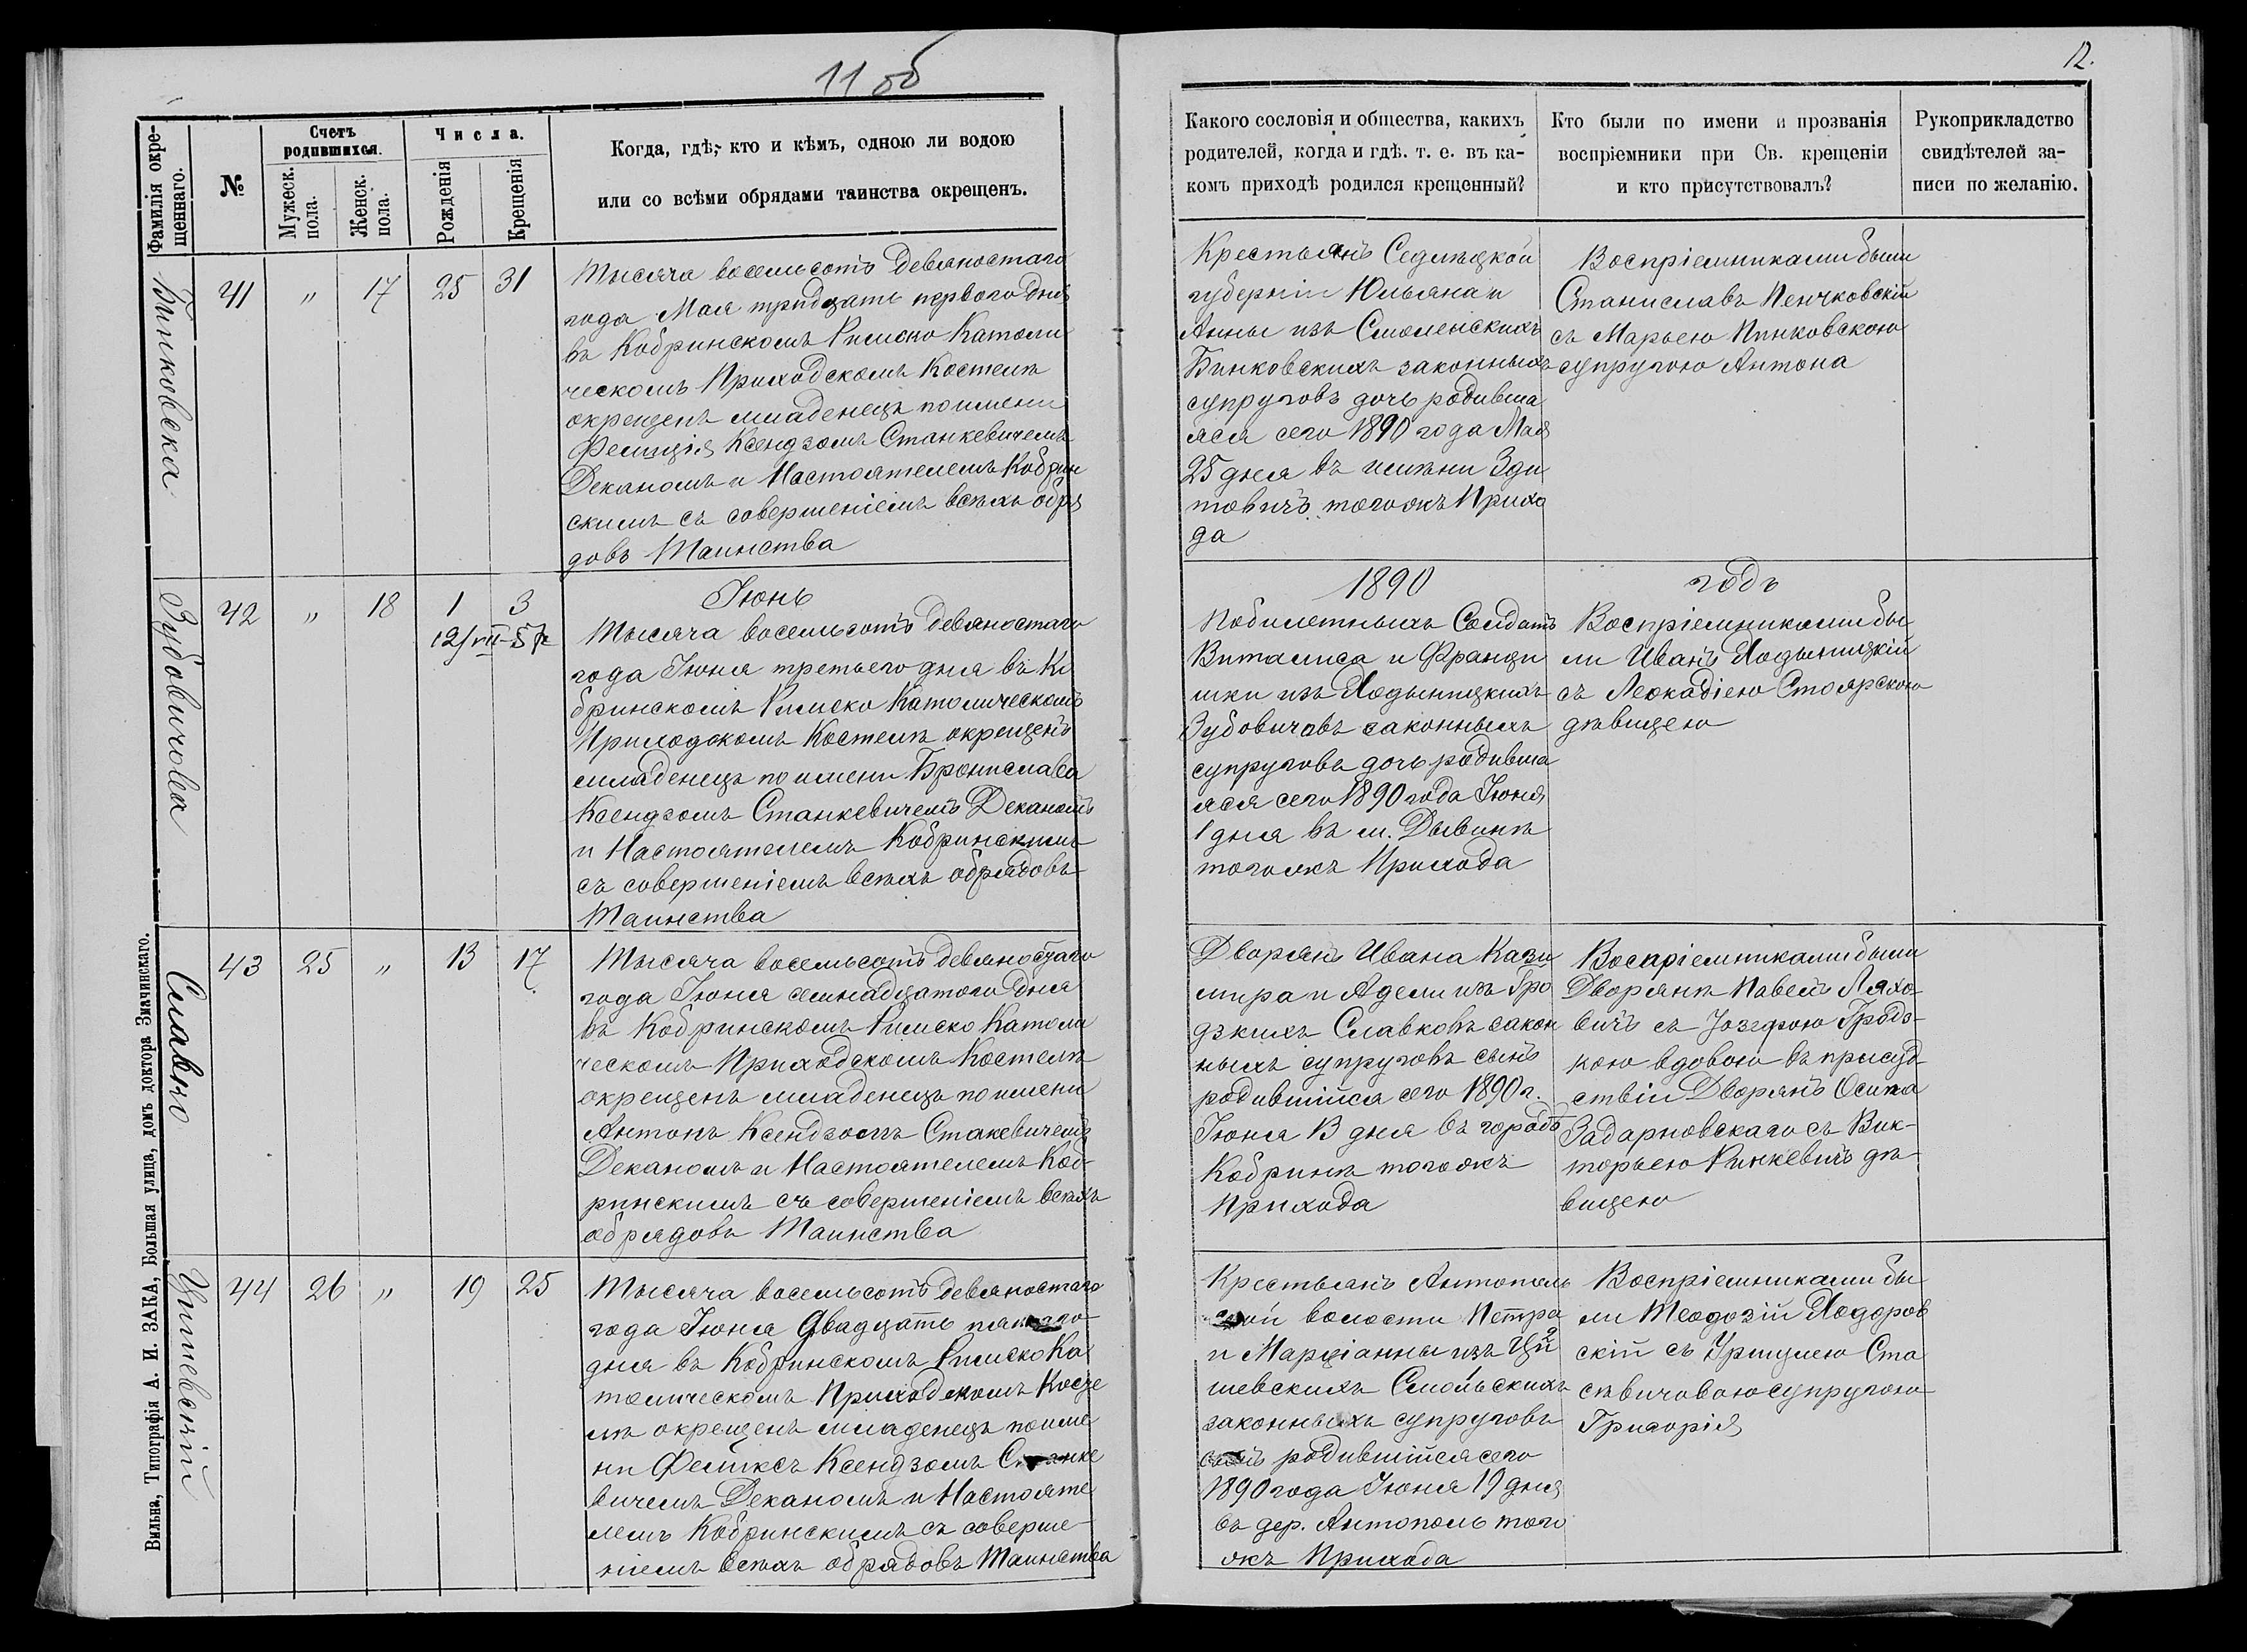 11 об
12.
Фамилія окре-
щеннаго.
№
Счетъ
родившихся.
Мужеск.
пола.
Женск.
пола.
Числа.
Рожденія
Крещенія
Когда, гдѣ, кто и кѣмъ, одною ли водою
или со всѣми обрядами таинства окрещенъ.
Какого сословія и общества, какихъ
родителей, когда и гдѣ. т. е. въ ка-
комъ приходѣ родился крещенный?
Кто были по имени и прозванія
воспріемники при Св. крещеніи
и кто присутствовалъ?
Рукоприкладство
свидѣтелей за-
писи по желанію.
Бинковска
41 " 17 25 31
Тысяча восемьсотъ девяностаго
года Мая тридцать перваго дня
въ Кобринскомъ Римско Католи
ческомъ Приходскомъ Костелѣ
окрещенъ младенецъ по имени
Фелиція Ксендзомъ Станкевичемъ
Деканомъ и Настоятелемъ Кобрин
скимъ съ совершеніемъ всѣхъ обря
довъ Таинства
Крестьянъ Седлецкой
губерніи Юльяна и
Анны изъ Смоленскихъ
Бинковскихъ законныхъ
супруговъ дочь родивша
яся сего 1890 года Мая
25 дня въ имѣніи Зди
товичъ тогожъ Прихо
да
Воспріемниками были
Станиславъ Пенчковскій
съ Марьею Пинковскою
супругою Антона
Зубовичова
42 " 18 1 3
12/VII-57г
Іюнь
Тысяча восемьсотъ девяностаго
года Іюня третьего дня въ Ко
бринскомъ Римско Католическомъ
Приходскомъ Костелѣ окрещенъ
младенецъ по имени Брониславa
Ксендзомъ Станкевичемъ Деканомъ
и Настоятелемъ Кобринскимъ
съ совершеніемъ всѣхъ обрядовъ
Таинства
1890
Побилетныхъ Солдатъ
Виталиса и Франци
шки изъ Ходыницкихъ
Зубовичовъ законныхъ
супруговъ дочь родивша
яся сего 1890 года Іюня
1 дня въ м. Дывинѣ
тогожъ Прихода
годъ
Воспріемниками бы
ли Иванъ Ходыницкій
съ Леокадіею Столярскою
дѣвицею
Славко
43 25 " 13 17
Тысяча восемьсотъ девяностаго
года Іюня семнадцатого дня
въ Кобринскомъ Римско Католи
ческомъ Приходскомъ Костелѣ
окрещенъ младенецъ по имени
Антонъ Ксендзомъ Стакевичемъ
Деканомъ и Настоятелемъ Коб-
ринскимъ съ совершеніемъ всѣхъ
обрядовъ Таинства
Дворянъ Ивана Кази
мира и Адели изъ Гро
дзкихъ Славковъ закон
ныхъ супруговъ сынъ
родившійся сего 1890 г.
Іюня 13 дня въ городѣ
Кобринѣ тогожъ
Прихода
Воспріемниками были
Дворянъ Павелъ Ляхо-
вичъ съ Іозефою Гродз-
кою вдовою въ присуд-
ствіи Дворянъ Осипа
Задарновскаго съ Вик-
торьею Ринкевичъ дѣ-
вицею
Цишевскій
44 26 " 19 25
Тысяча восемьсотъ девяностаго
года Іюня двадцать пятаго
дня въ Кобринскомъ Римско Ка
толическомъ Приходскомъ Косте
лѣ окрещенъ младенецъ по име
ни Феликсъ Ксендзомъ Станке
вичемъ Деканомъ и Настояте
лемъ Кобринскимъ съ соверше-
ніемъ всѣхъ обрядовъ Таинства
Крестьянъ Антополь
ской волости Петра
и Марціанны изъ Ци
шевскихъ Смольскихъ
законныхъ супруговъ
сынъ родившійся сего
1890 года Іюня 19 дня
въ дер. Антополь того
жъ Прихода
Воспріемниками бы
ли Теодозій Ходоров
скій съ Уршулею Ста
сѣвичовою супругою
Григорія
Вильна, Типографія А. И. ЗАКА, Большая улица, домъ доктора Змачинскаго.